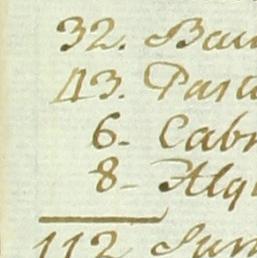 32. Bau
43. Past
6- Cabr
8- Alg
112 Sum